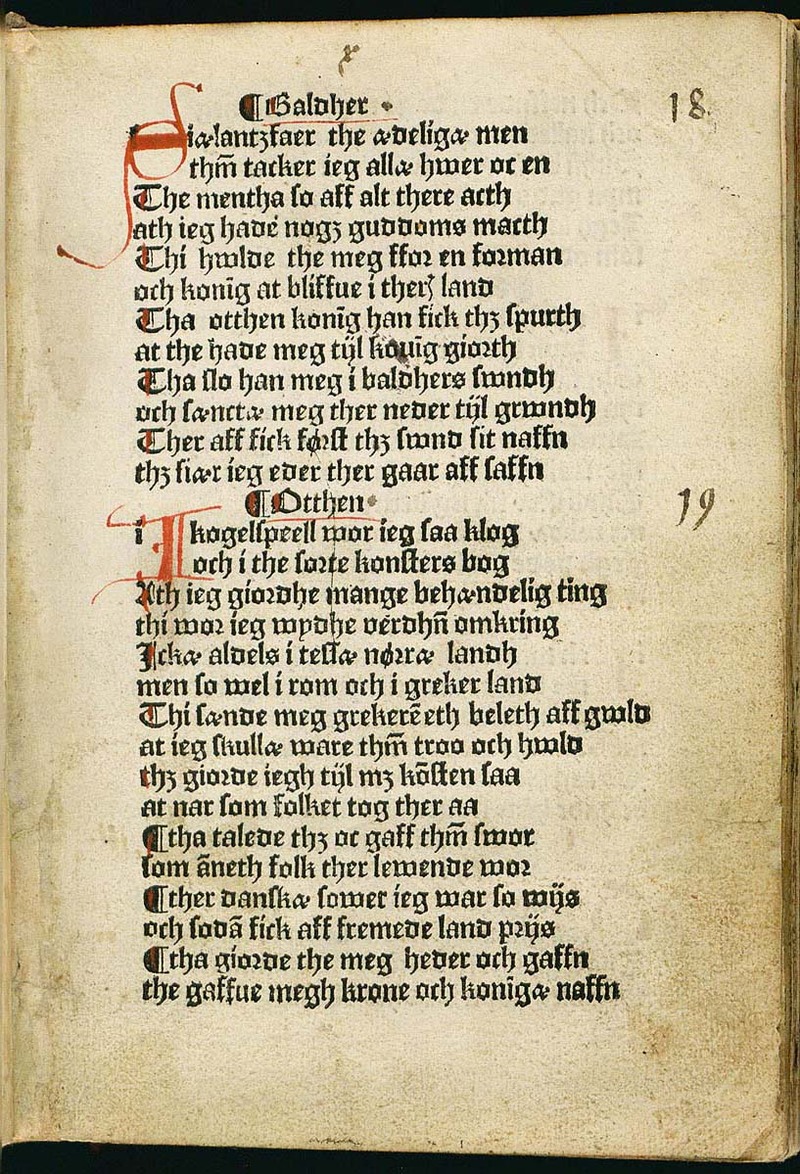 ¶Baldher
18
Siælantzfaer the ædeligæ men
thm̄ tacker ieg allæ hwer oc en
The mentha so aff alt there acth
ath ieg hade nogꝫ guddoms macth
Thi hwlde the meg ffor en forman
och konīg at bliffue i ther land
Tha otthen konīg han fick thꝫ spurth
at the hade meg tijl konīg giorth
Tha slo han meg i baldhers swndh
och sænctæ meg ther neder tijl grwndh
Ther aff fick først thꝫ swnd sit naffn
thꝫ siær ieg eder ther gaar aff saffn
¶Otthen
19
I kogelspeell wor ieg saa klog
och i the sorte konsters bog
Ath ieg giordhe mange behændelig ting
thi wor ieg wydhe verdhn̄ omkring
Ickæ aldels i tessæ nørræ landh
men so wel i rom och i greker land
Thi sænde meg grekerē eth beleth aff gwld
at ieg skullæ ware thm̄ troo och hwld
thꝫ giorde iegh tijl mꝫ kōsten saa
at nar som folket tog ther aa
¶tha talede thꝫ oc gaff thm̄ swor
som āneth folk ther lewende wor
¶ther danskæ sower ieg war so wijs
och sodā fick aff fremede land prijs
¶tha giorde the meg heder och gaffn
the gaffue megh krone och konīgæ naffn